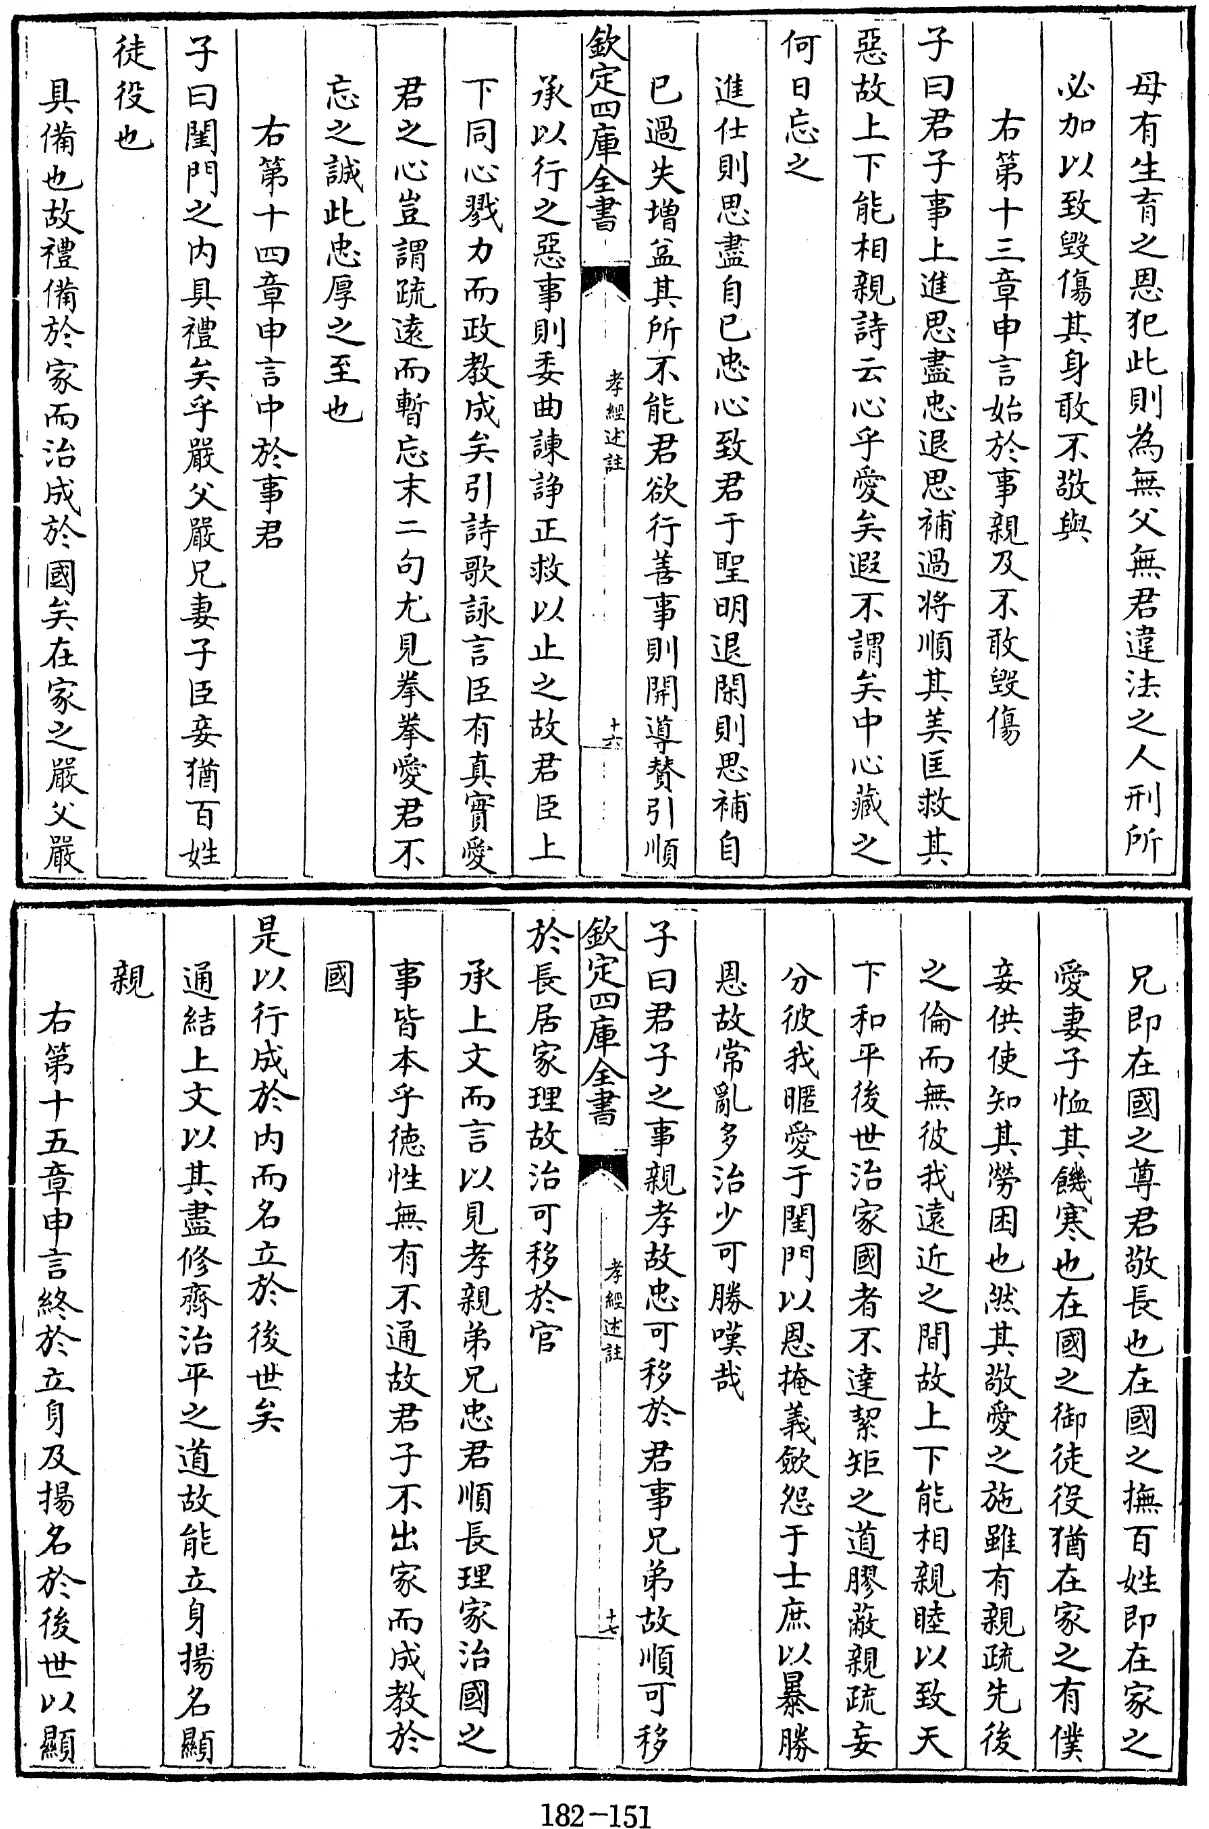 母有生育之恩犯此則為無父無君違法之人刑所
必加以致毀傷其身敢不敬與
右第十三章申言始於事親及不敢毀傷
子曰君子事上進思盡忠退思補過將順其美匡救其
惡故上下能相親詩云心乎愛矣遐不謂矣中心藏之
何日忘之
進仕則思盡自已忠心致君于聖明退閑則思補自
已過失增益其所不能君欲行善事則開導贊引順
欽定四庫全書
孝經述註
十六
承以行之惡事則委曲諫諍正救以止之故君臣上
下同心戮力而政教成矣引詩歌詠言臣有真實愛
君之心豈謂疏遠而暫忘末二句尤見拳拳愛君不
忘之誠此忠厚之至也
右第十四章申言中於事君
子曰閨門之内具禮矣乎嚴父嚴兄妻子臣妾猶百姓
徒役也
具備也故禮備於家而治成於國矣在家之嚴父嚴
兄即在國之尊君敬長也在國之撫百姓即在家之
愛妻子恤其饑寒也在國之御徒役猶在家之有僕
妾供使知其勞困也然其敬愛之施雖有親疏先後
之倫而無彼我遠近之間故上下能相親睦以致天
下和平後世治家國者不達絜矩之道膠蔽親疏妄
分彼我暱愛于閨門以恩掩義斂怨于士庶以暴勝
恩故常亂多治少可勝嘆哉
子曰君子之事親孝故忠可移於君事兄弟故順可移
欽定四庫全書
孝經述註
十七
於長居家理故治可移於官
承上文而言以見孝親弟兄忠君順長理家治國之
事皆本乎德性無有不通故君子不出家而成教於
國
是以行成於内而名立於後世矣
通結上文以其盡修齊治平之道故能立身揚名顯
親
右第十五章申言終於立身及揚名於後世以顯
182-151